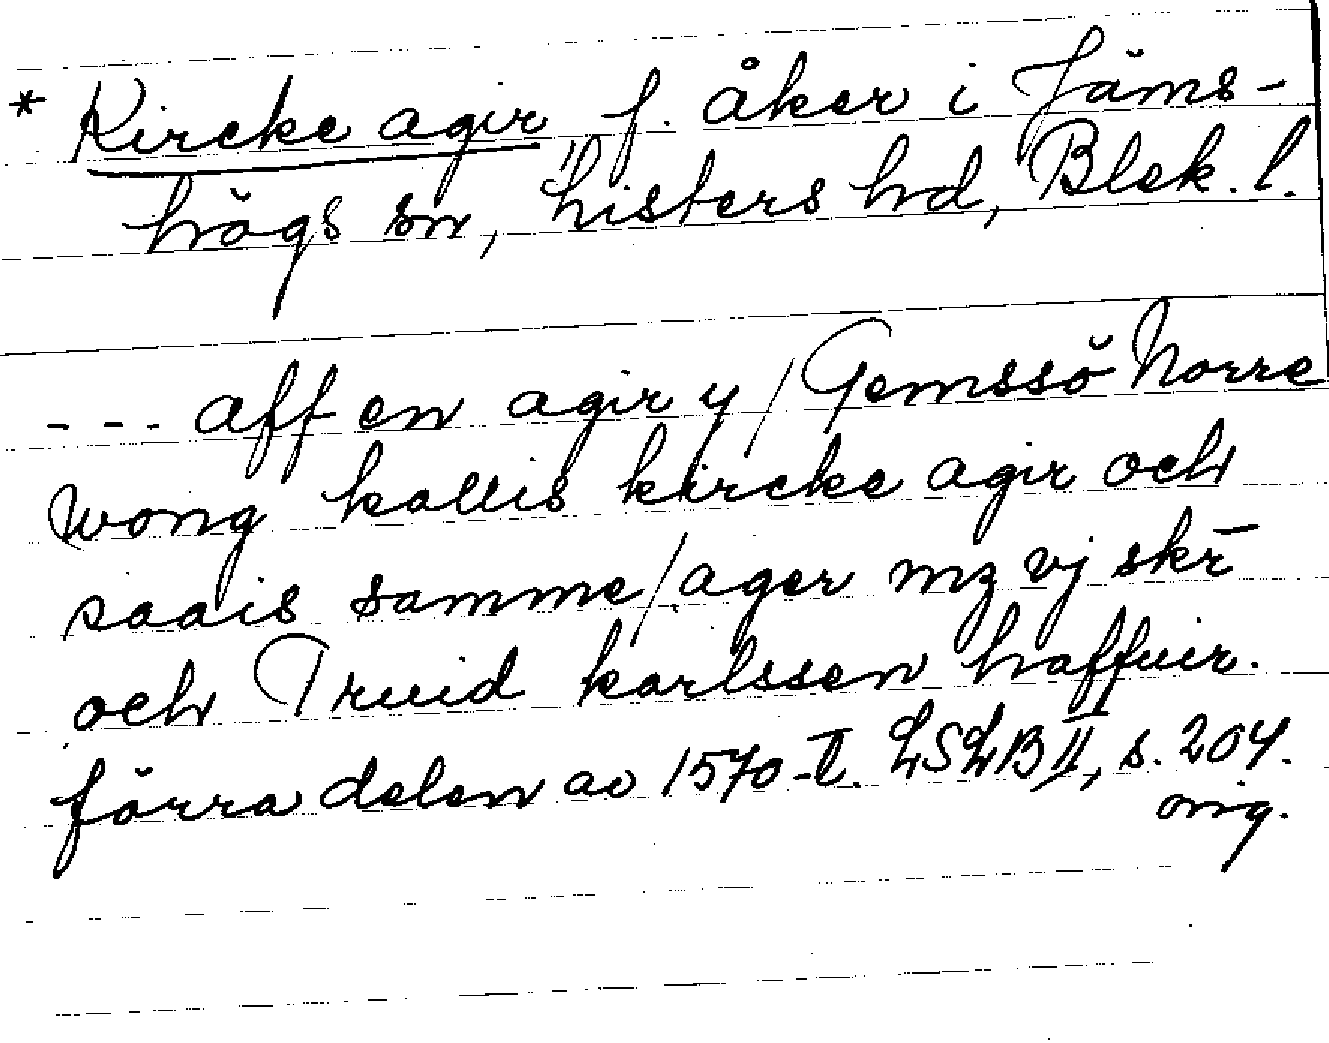 * Kircke agir f. åker i Jäms-
högs sn, Listers hd, Blek. l.
--- aff en agir y / Gemssö Norre
wong kallis kircke agir och
saais samme / ager mz vj skr̄
och Truid karlssen haffuir.
förra delen av 1570-t. LSLB II, s. 204.
orig.